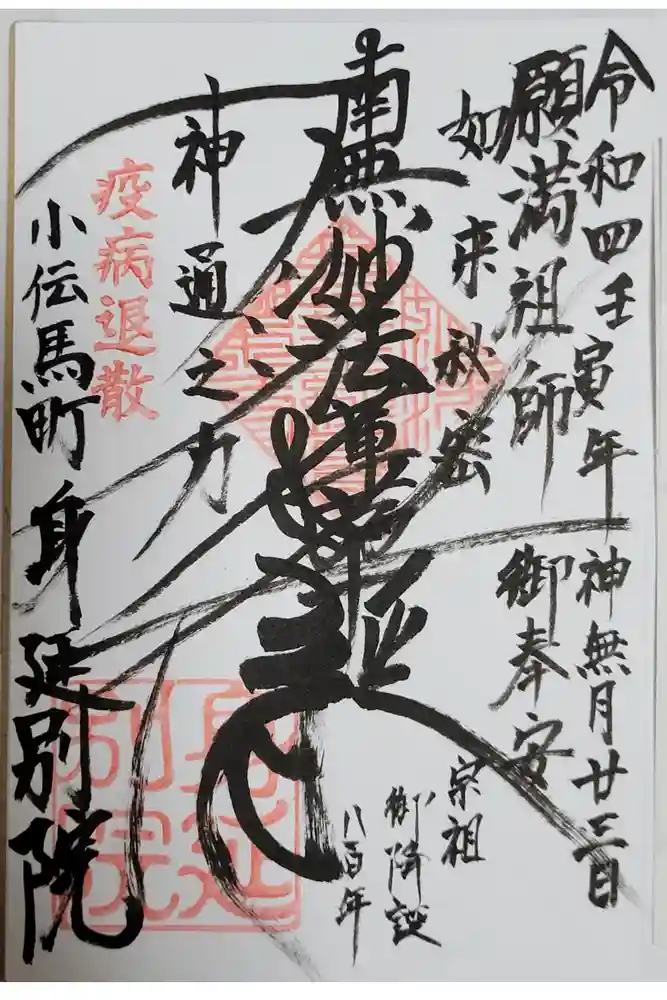 令和四壬寅年 神無月廿三日
願満祖師 御奉安
如来秘密
宗祖
御降誕
八百年
南無妙法蓮華経
神通之力
疫病退散
小伝馬町 身延別院
身延
別院